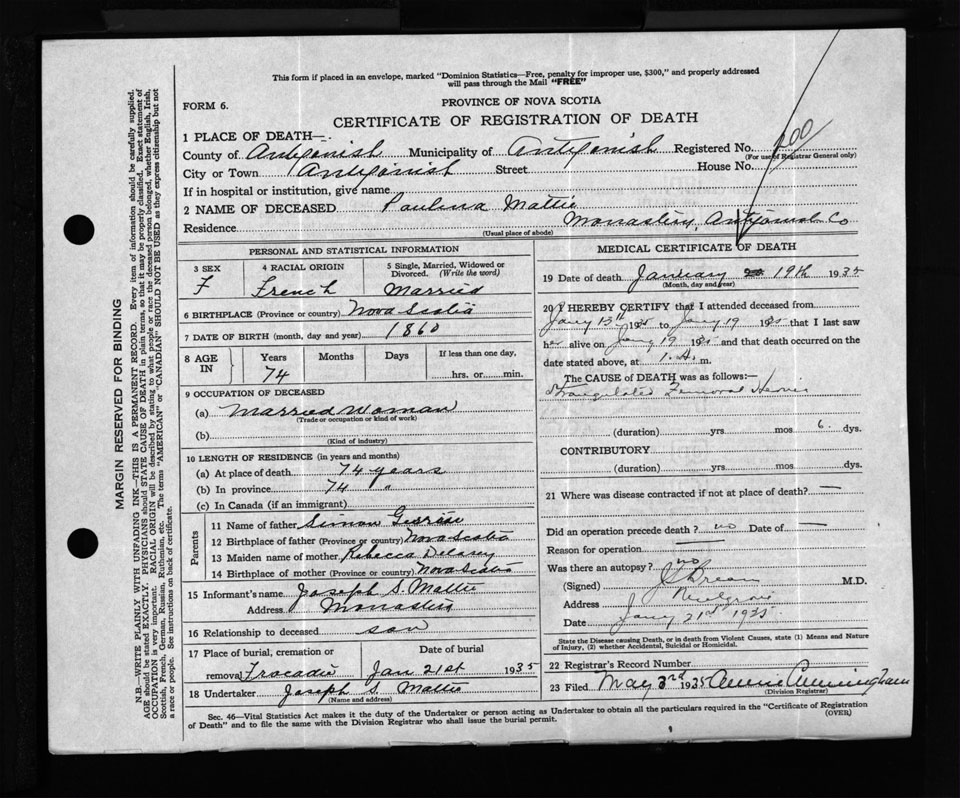 This form if placed in an envelope, marked "Dominion Statistics—Free, penalty for improper use, $300," and properly addressed
will pass through the Mail "FREE"
FORM 6.
PROVINCE OF NOVA SCOTIA
CERTIFICATE OF REGISTRATION OF DEATH
1 PLACE OF DEATH—
County of Antigonish Municipality of Antigonish Registered No. 200
(For use of Registrar General only)
City or Town Antigonish Street House No.
If in hospital or institution, give name
2 NAME OF DECEASED Paulina Mattie
Residence Monastery, Antigonish Co
(Usual place of abode)
PERSONAL AND STATISTICAL INFORMATION
3 SEX F
4 RACIAL ORIGIN French
5 Single, Married, Widowed or Divorced. (Write the word) Married
6 BIRTHPLACE (Province or country) Nova Scotia
7 DATE OF BIRTH (month, day and year) 1860
8 AGE IN Years 74 Months Days If less than one day, hrs. or min.
9 OCCUPATION OF DECEASED
(a) Married Woman
(Trade or occupation or kind of work)
(b)
(Kind of industry)
10 LENGTH OF RESIDENCE (in years and months)
(a) At place of death 74 years
(b) In province 74 "
(c) In Canada (if an immigrant)
Parents
11 Name of father Simon
12 Birthplace of father (Province or country) Nova Scotia
13 Maiden name of mother Rebecca Delorey
14 Birthplace of mother (Province or country) Nova Scotia
15 Informant's name Joseph S. Mattie
Address Monastery
16 Relationship to deceased son
17 Place of burial, cremation or removal Tracadie
Date of burial Jan 21st 1935
18 Undertaker Joseph S. Mattie
(Name and address)
MEDICAL CERTIFICATE OF DEATH
19 Date of death January 19th 1935
(Month, day and year)
20 I HEREBY CERTIFY that I attended deceased from
Jany 13th 1935 to Jany 19 1935 that I last saw
her alive on Jany 19 1935 and that death occurred on the
date stated above, at 1. A. m.
The CAUSE OF DEATH was as follows:—
Strangulated Femoral Hernia
(duration) yrs. mos 6. dys.
CONTRIBUTORY
(duration) yrs. mos. dys.
21 Where was disease contracted if not at place of death? —
Did an operation precede death? no Date of —
Reason for operation —
Was there an autopsy? no
(Signed) M.D.
Address Mulgrave
Date Jany 21st 1935
State the Disease causing Death, or in death from Violent Causes, state (1) Means and Nature
of Injury, (2) whether Accidental, Suicidal or Homicidal.
22 Registrar's Record Number
23 Filed May 3rd 1935 Annie Cunningham
(Division Registrar)
Sec. 46—Vital Statistics Act makes it the duty of the Undertaker or person acting as Undertaker to obtain all the particulars required in the "Certificate of Registration
of Death" and to file the same with the Division Registrar who shall issue the burial permit.
(OVER)
MARGIN RESERVED FOR BINDING
N.B.—WRITE PLAINLY WITH UNFADING INK—THIS IS A PERMANENT RECORD. Every item of information should be carefully supplied.
AGE should be stated EXACTLY. PHYSICIANS should STATE CAUSE OF DEATH in plain terms, so that it may be properly classified. Exact statement of
OCCUPATION is very important. RACIAL ORIGIN will be described by stating to what people or race the deceased person belonged, whether English, Irish,
Scottish, French, German, Russian, Ruthenian, etc. The terms "AMERICAN" or "CANADIAN" SHOULD NOT BE USED as they express citizenship but not
a race or people. See instructions on back of certificate.